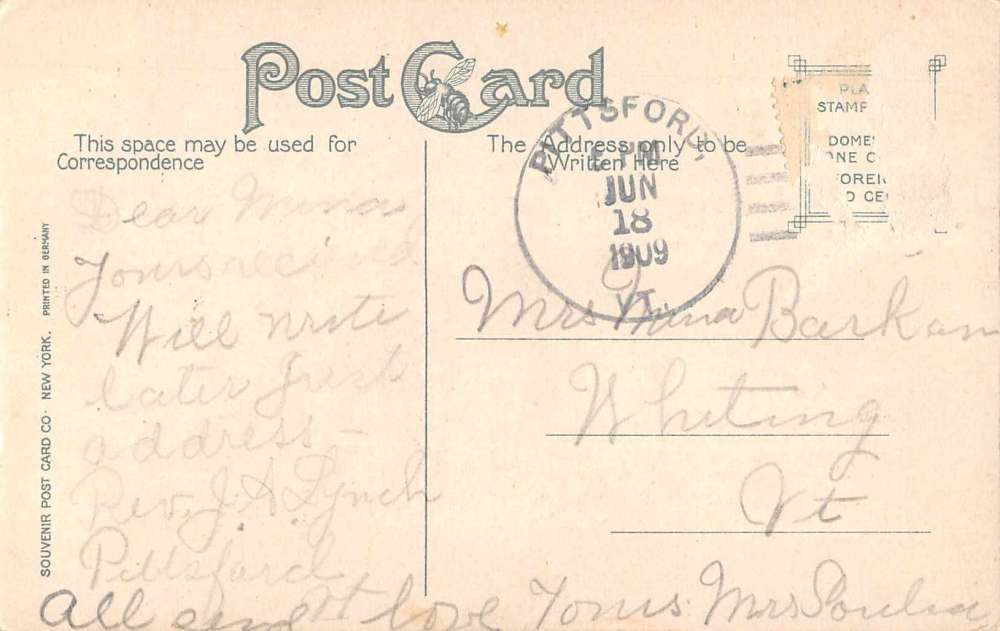 Post Card
This space may be used for
Correspondence
The Address only to be
Written Here
PITTSFORD,
PM
JUN
18
1909
VT.
PLA
STAMP
DOME
ONE C
FOREI
D CE
SOUVENIR POST CARD CO. NEW YORK. PRINTED IN GERMANY
Dear Mina
Yours reci'ed
Will write
later just
address -
Rev. J. A. Lynch
Pittsford
All send love Yours Mrs
Mrs Mina
Whiting
Vt